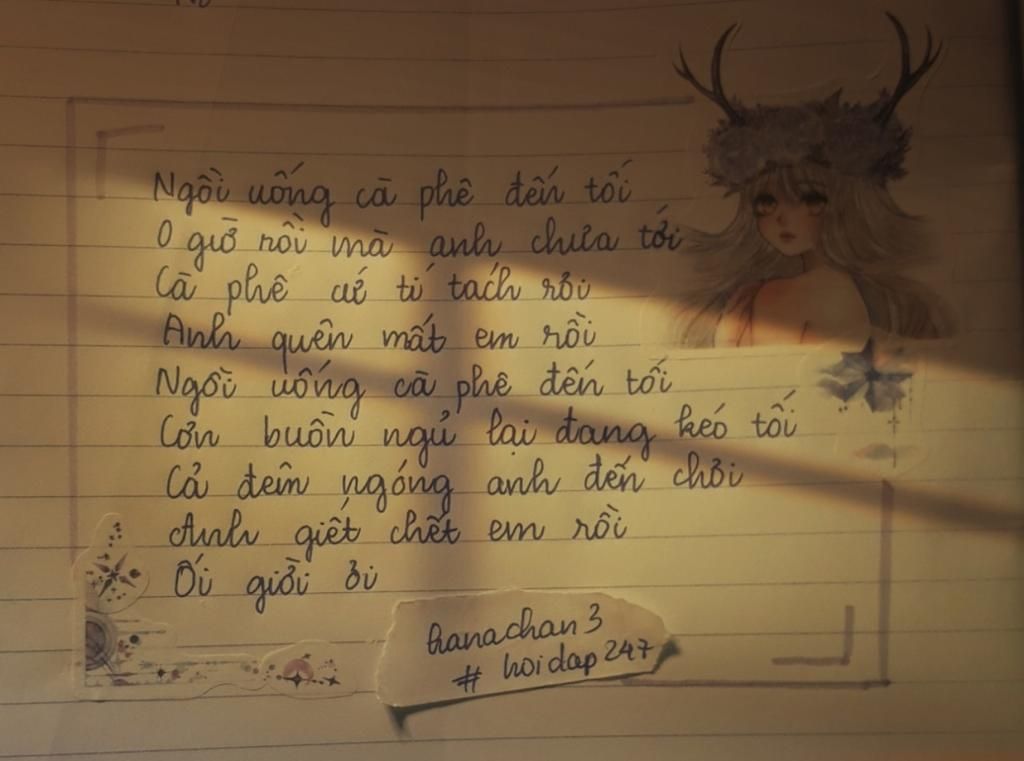 Ngồi uống cà phê đến tối
0 giờ rồi mà anh chưa tới
Cà phê cứ tí tách rơi
Anh quên mất em rồi
Ngồi uống cà phê đến tối
Cơn buồn ngủ lại đang kéo tối
Cả đêm ngóng anh đến chơi
Anh giết chết em rồi
Ối giời ơi
hanachan3
# hoidap247